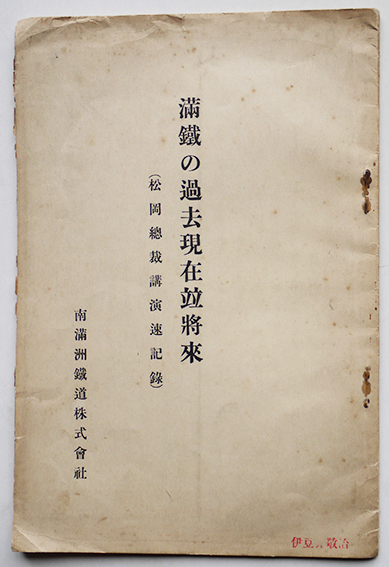 滿鐵の過去現在竝將來
(松岡總裁講演速記錄)
南滿洲鐵道株式會社
伊豆 敬治